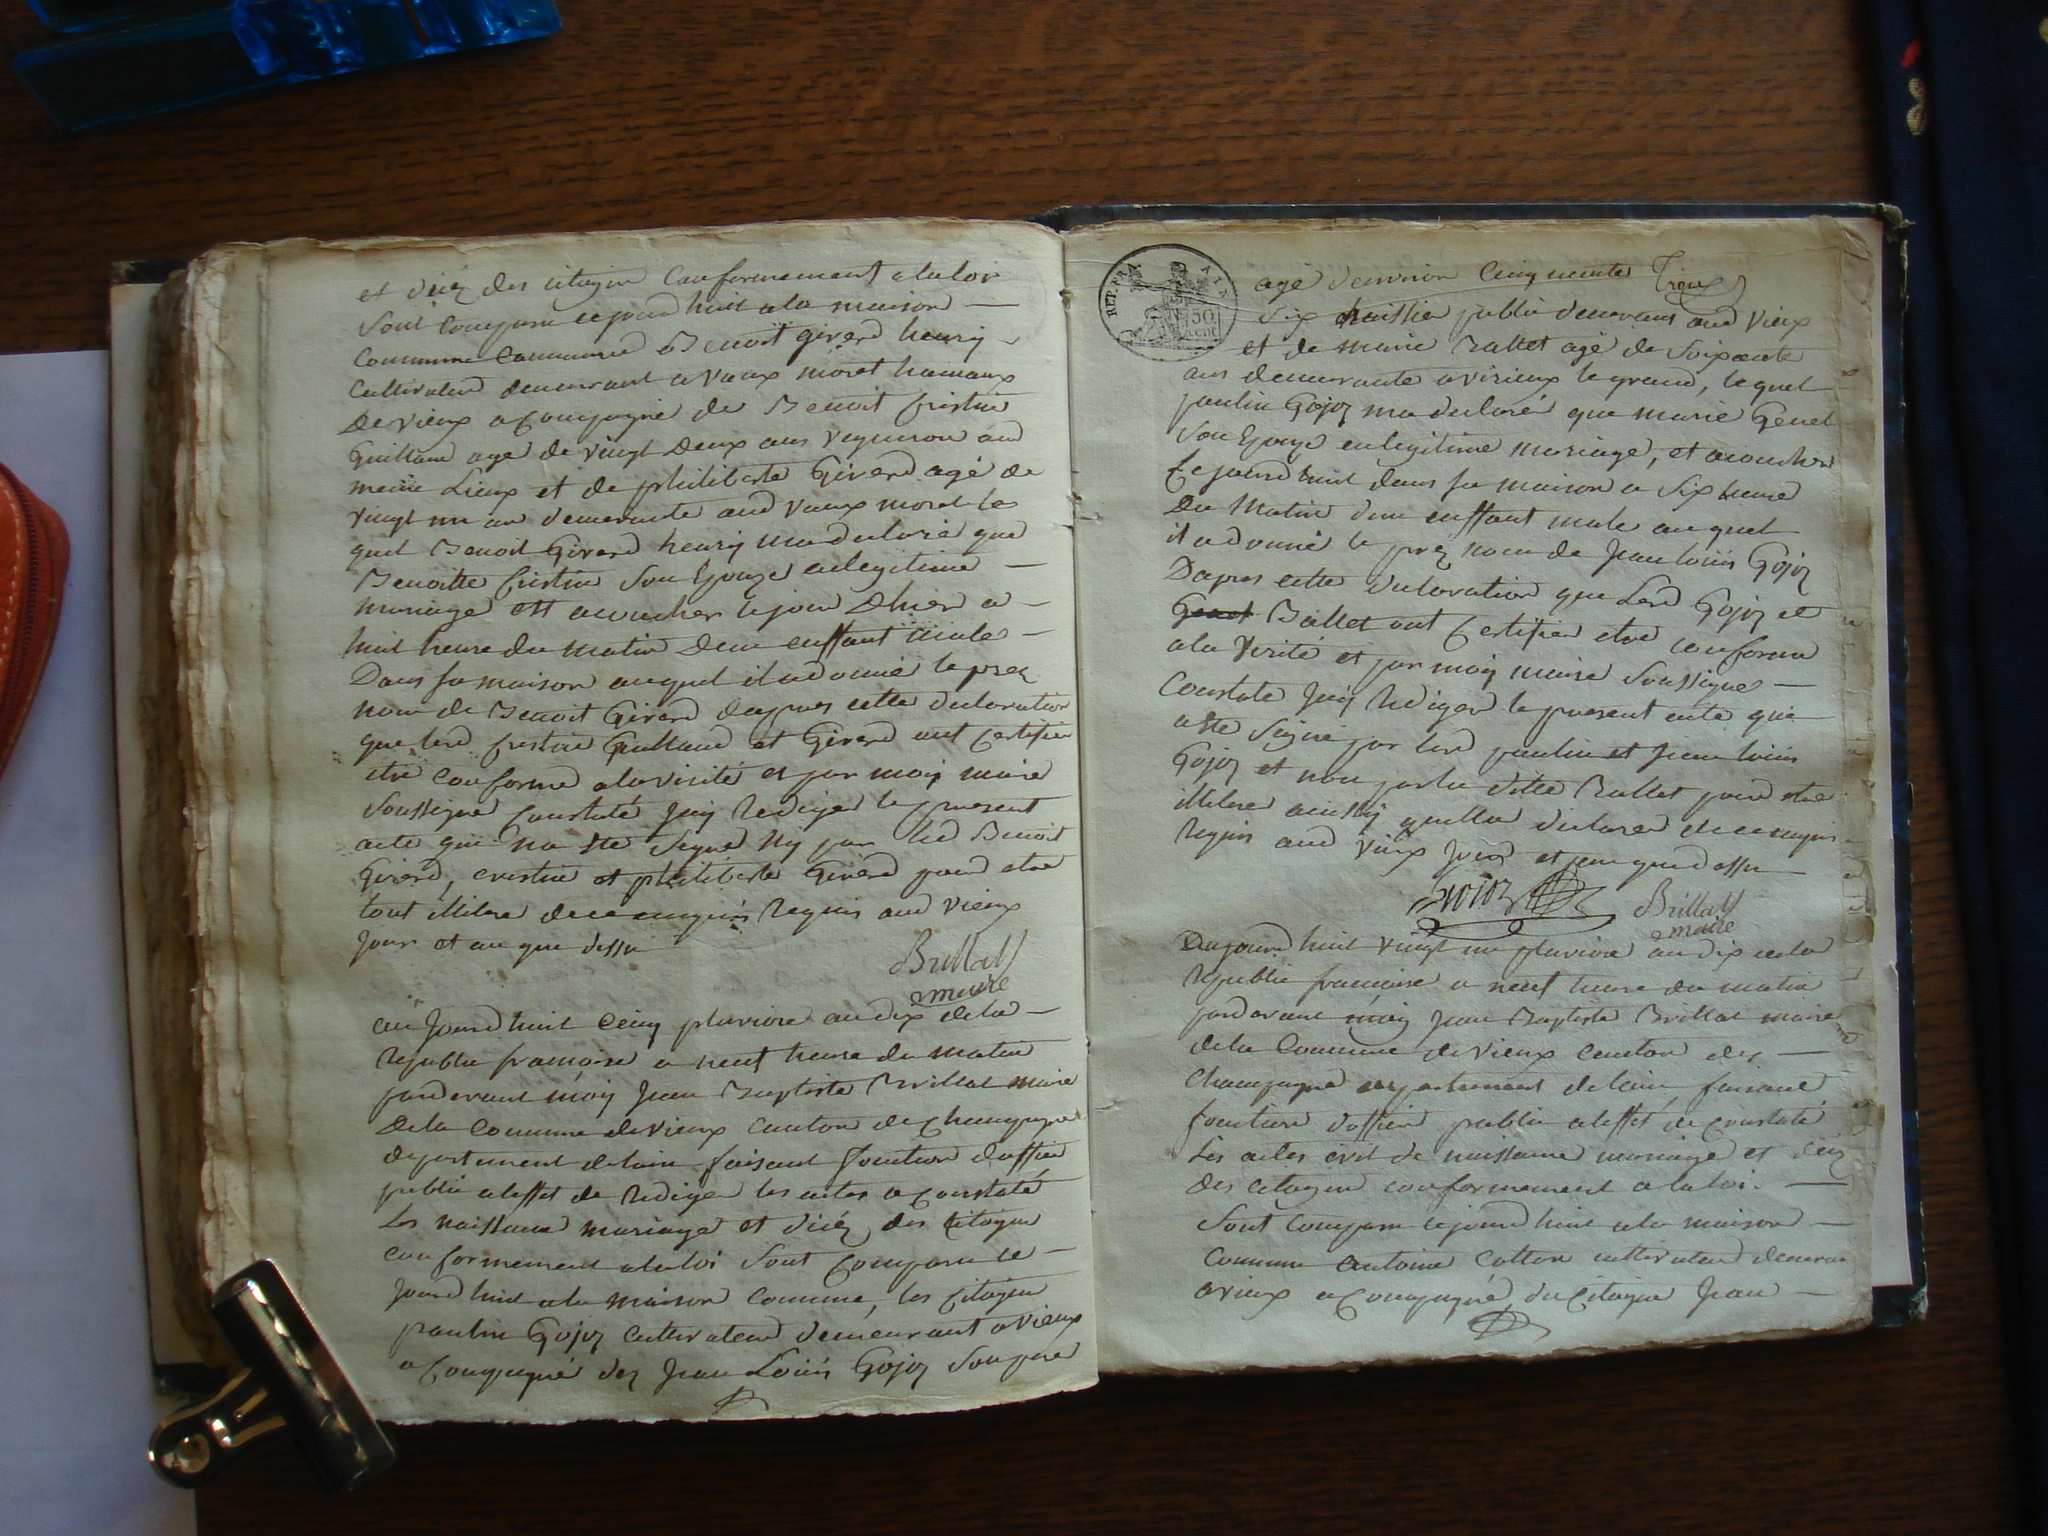 et décéz des citoyen conformement a la loi
Sont comparu cejourd huit a la maison
Commune Benoit Girerd henry
Cultivateur demeurant a Vaux moret hamaux
De vieux acompagné de Benoit Cristin
Guilland agé de vingt Deux ans vigneron aud
meme Lieux et de philiberte Girerd agé de
vingt un an demeurante aud Vaux moret le
quel Benoit Girerd henry ma declaré que
Benoitte Cristin Son Epouze en legitime
mariage est acoucher le jour Dhier a
huit heure du matin Dun enffant male
Dans sa maison auquel il a donné le prez
nom de Benoit Girerd dapres cette declaration
que lesd Cristin Guilland et Girerd ont certifier
etre conforme a la vérité et par moÿ maire
Soussigné constaté Jaÿ Rediger le present
acte qui na été Signé Ny par led Benoit
Girerd, cristin et philiberte Girerd pour etre
tout illitere de ce enquis Requis aud vieux
Jour et an que dessu
Brillat
maire
aujourd huit Cinq pluviose an dix de la
Republi françoise a neuf heure du matin
pardevant moÿ Jean Baptiste Brillat maire
De la Commune de vieux canton de Champagne
departement de lain faisant fonction dofficier
public a leffet de Rediger les actes a constaté
Les naissance mariage et décéz des citoyen
conformement a la loi Sont comparu ce
jourd huit a la maison commune, les citoyen
paulin Gojoz cultivateur demeurant a vieux
acompagné dez Jean Loüis Gojoz Son pere
REP. FRA
50
CENT
agé denviron Cinquante Trois
Six huissier public demeurant aud vieux
et de marie Ballet agé de Soixante
ans demeurante a virieux le grand, lequel
paulin Gojoz ma declaré que marie Genet
Son Epouze en legitime mariage, et acoucher
Cejourd huit dans sa maison a Six heure
Du Matin dun enffant male auquel
il a donné le prez nom de Jean louïs Gojoz
Dapres cette declaration que Lesd Gojoz et
Genet Ballet ont certifier etre conforme
a la vérité et par moÿ maire Soussigné
Constaté Jaÿ Rediger le present acte qui
a été Signé par lesd paulin et jean louis
Gojoz et non par la ditte Ballet pour etre
illitere ainssÿ quella declaré de ce enquis
Requis aud vieux Jour et jan que dessu
Gojoz
Brillat
maire
Aujourd huit vingt un pluviose an dix de la
republi francoise a neuf heure du matin
pardevant moÿ Jean Baptiste Brillat maire
de la Commune de vieux canton dez
Champagne departement de lain faisant
fonction dofficier public a leffet de constaté
Les actes civil de naissance mariage et décéz
Des citoyen conformement a la loi.
Sont comparu cejourd huit a la maison
commune antoine Catton cultivateur demeurant
a vieux acompagné du citoyen Jean